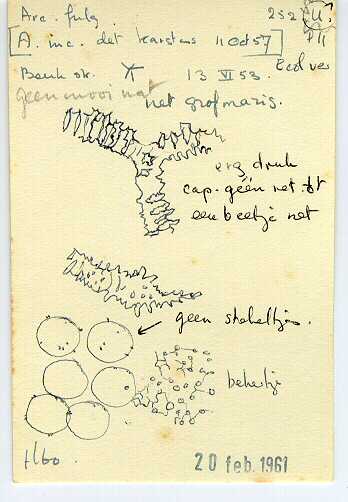 Arc. fulg 252
[A. inc. det Karstens 11 oct 57] PII
Benk st. 13 VI 53. Ecol ver
Geen mooi nat
net grofmazig.
erg druk
cap. geen net of
een beetje net
geen stekeltjes.
behertje
H60.
20 feb. 1961